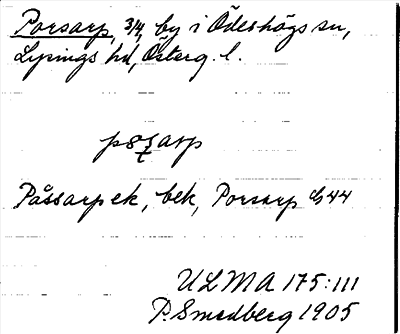 Porsarp, 3/4, by i Ödeshögs sn,
Lysings hd, Österg. l.
Påssarp ek, bek, Porsarp 44
ULMA 175:111
P. Smedberg 1905